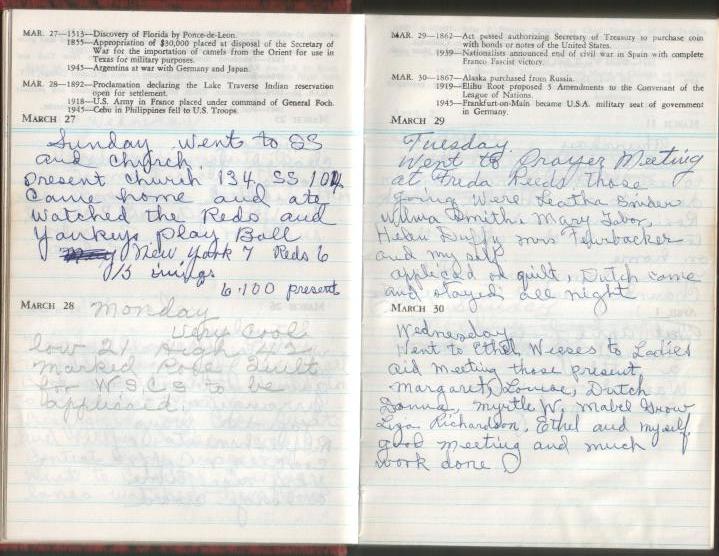 MAR. 27—1513—Discovery of Florida by Ponce-de-Leon.
1855—Appropriation of $30,000 placed at disposal of the Secretary of
War for the importation of camels from the Orient for use in
Texas for military purposes.
1945—Argentina at war with Germany and Japan.
MAR. 28—1892—Proclamation declaring the Lake Traverse Indian reservation
open for settlement.
1918—U.S. Army in France placed under command of General Foch.
1945—Cebu in Philippines fell to U.S. Troops.
MARCH 27
Sunday went to SS
and church
Present church 134, SS 104
Came home and ate
watched the Reds and
Yankeys Play Ball
New York 7 Reds 6
13 innings
6,100 present
MARCH 28
Monday
very cool
low 21 High 42
marked Rose Quilt
for W.S.C.S to be
appliced.
MAR. 29—1862—Act passed authorizing Secretary of Treasury to purchase coin
with bonds or notes of the United States.
1939—Nationalists announced end of civil war in Spain with complete
Franco Fascist victory.
MAR. 30—1867—Alaska purchased from Russia.
1919—Elihu Root proposed 5 Amendments to the Convenant of the
League of Nations.
1945—Frankfurt-on-Main became U.S.A. military seat of government
in Germany.
MARCH 29
Tuesday
Went to Prayer Meeting
at Freda Reeds Those
going Were Leatha
Wilma Smith, Mary Tabor,
Helen Duffy Mrs
and my self
appliced on quilt, Dutch came
and stayed all night
MARCH 30
Wednesday
Went to Ethel Wieses to Ladies
aid meeting those present
Margaret, Louise, Dutch
Donna, Myrtle W, Mabel Grow
Liza Richardson, Ethel and myself,
good meeting and much
work done